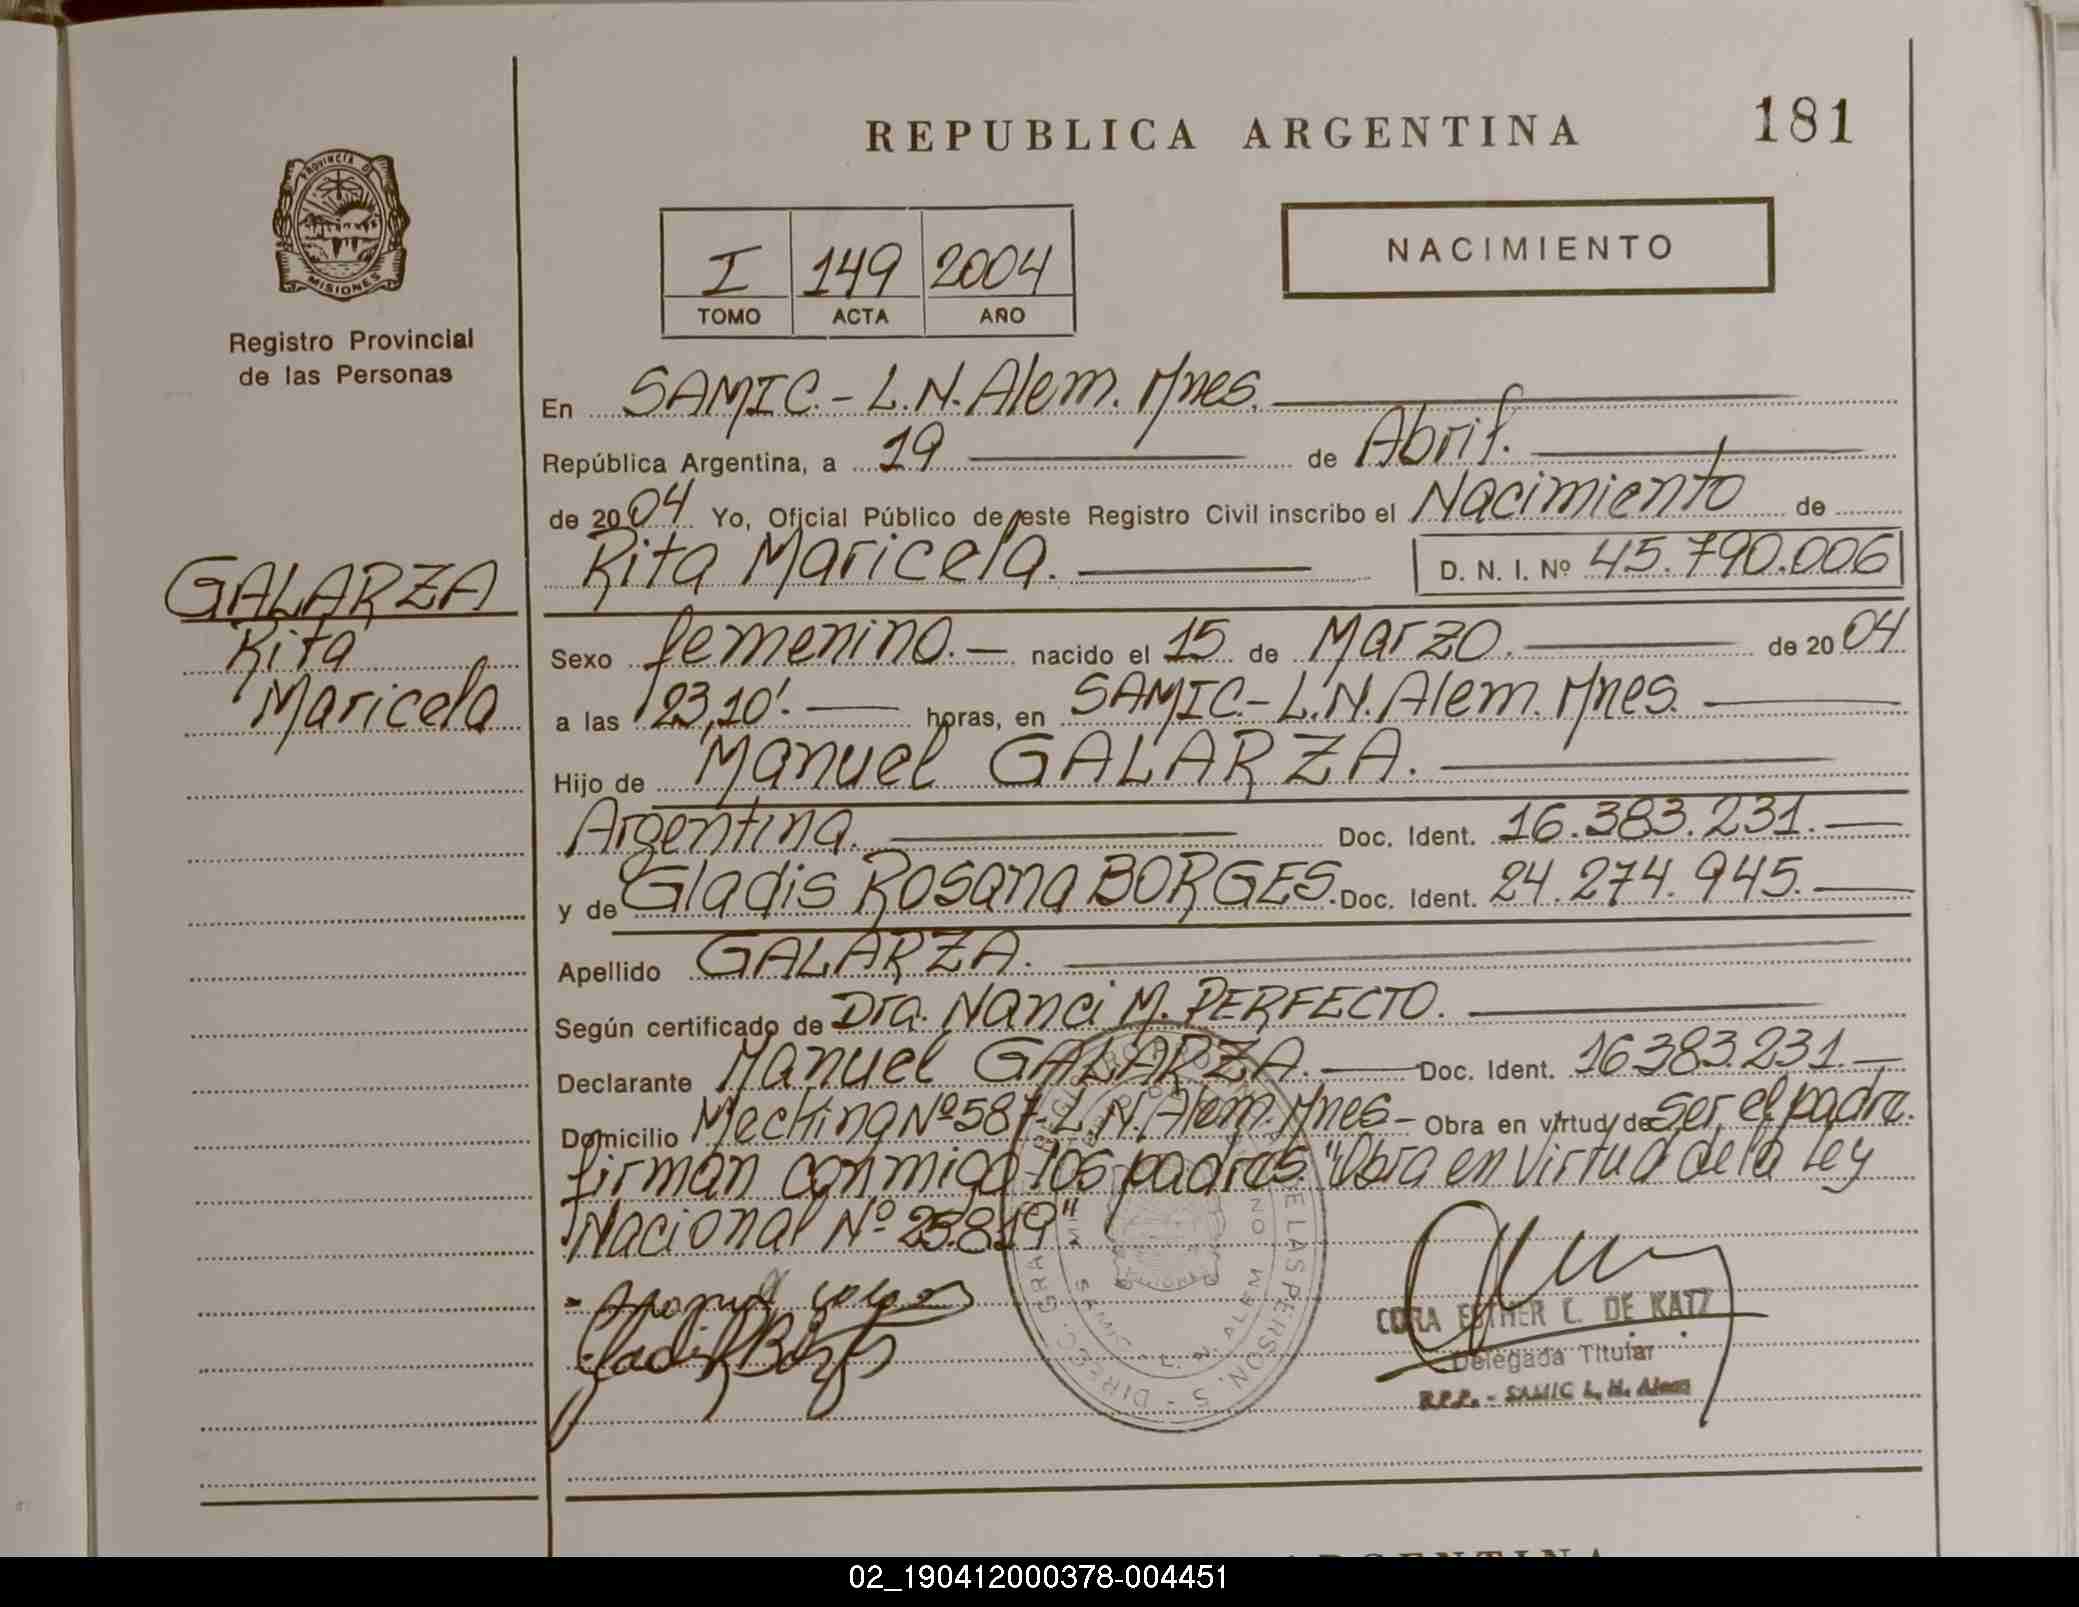 REPUBLICA ARGENTINA
181
PROVINCIA DE
MISIONES
Registro Provincial
de las Personas
I 149 2004
TOMO ACTA AÑO
NACIMIENTO
En SAMIC.- L.N. Alem. Mnes.
República Argentina, a 19 de Abril.
de 2004 Yo, Oficial Público de este Registro Civil inscribo el Nacimiento de
Rita Maricela. D. N. I. Nº 45.790.006
GALARZA
Rita
Maricela
Sexo femenino.- nacido el 15 de Marzo. de 2004
a las 23,10'. horas, en SAMIC.- L.N. Alem. Mnes.
Hijo de Manuel GALARZA.
Argentina. Doc. Ident. 16.383.231.-
y de Gladis Rosana BORGES. Doc. Ident. 24.274.945.-
Apellido GALARZA.
Según certificado de Dra. Nanci M. PERFECTO.
Declarante Manuel GALARZA. Doc. Ident. 16383.231.-
Domicilio Mecking Nº 587- L.N. Alem. Mnes- Obra en virtud de Ser el padre.
firman conmigo los padres. "Obra en Virtud de la Ley
Nacional Nº 25.819"
Gladis Borges
CORA ESTHER C. DE KATZ
Delegada Titular
R.P.P. - SAMIC L. N. Alem
ARGENTINA
02_190412000378-004451